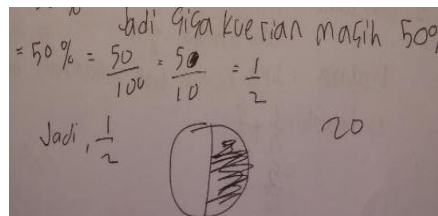 Jadi sisa kuerian masih 50%
= 50% = 50/100 = 50/10 = 1/2
Jadi, 1/2
20